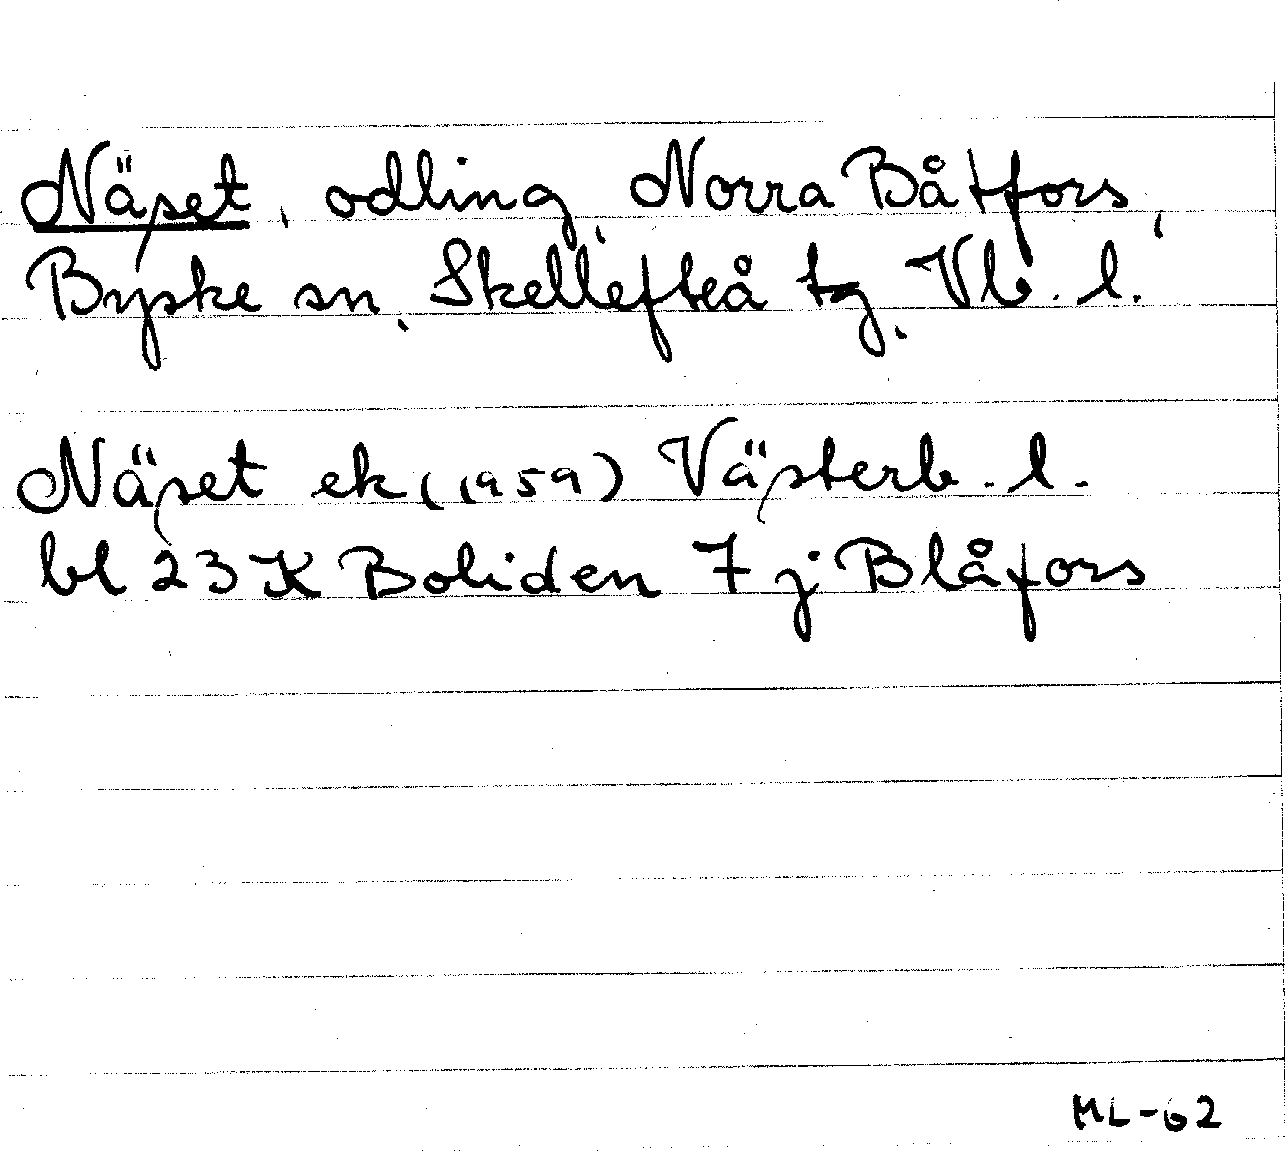 Näset, odling, Norra Båtfors,
Byske sn, Skellefteå tg, Vb. l.
Näset ek (1959) Västerb. l.
bl 23 K Boliden 7 j Blåfors
ML-62